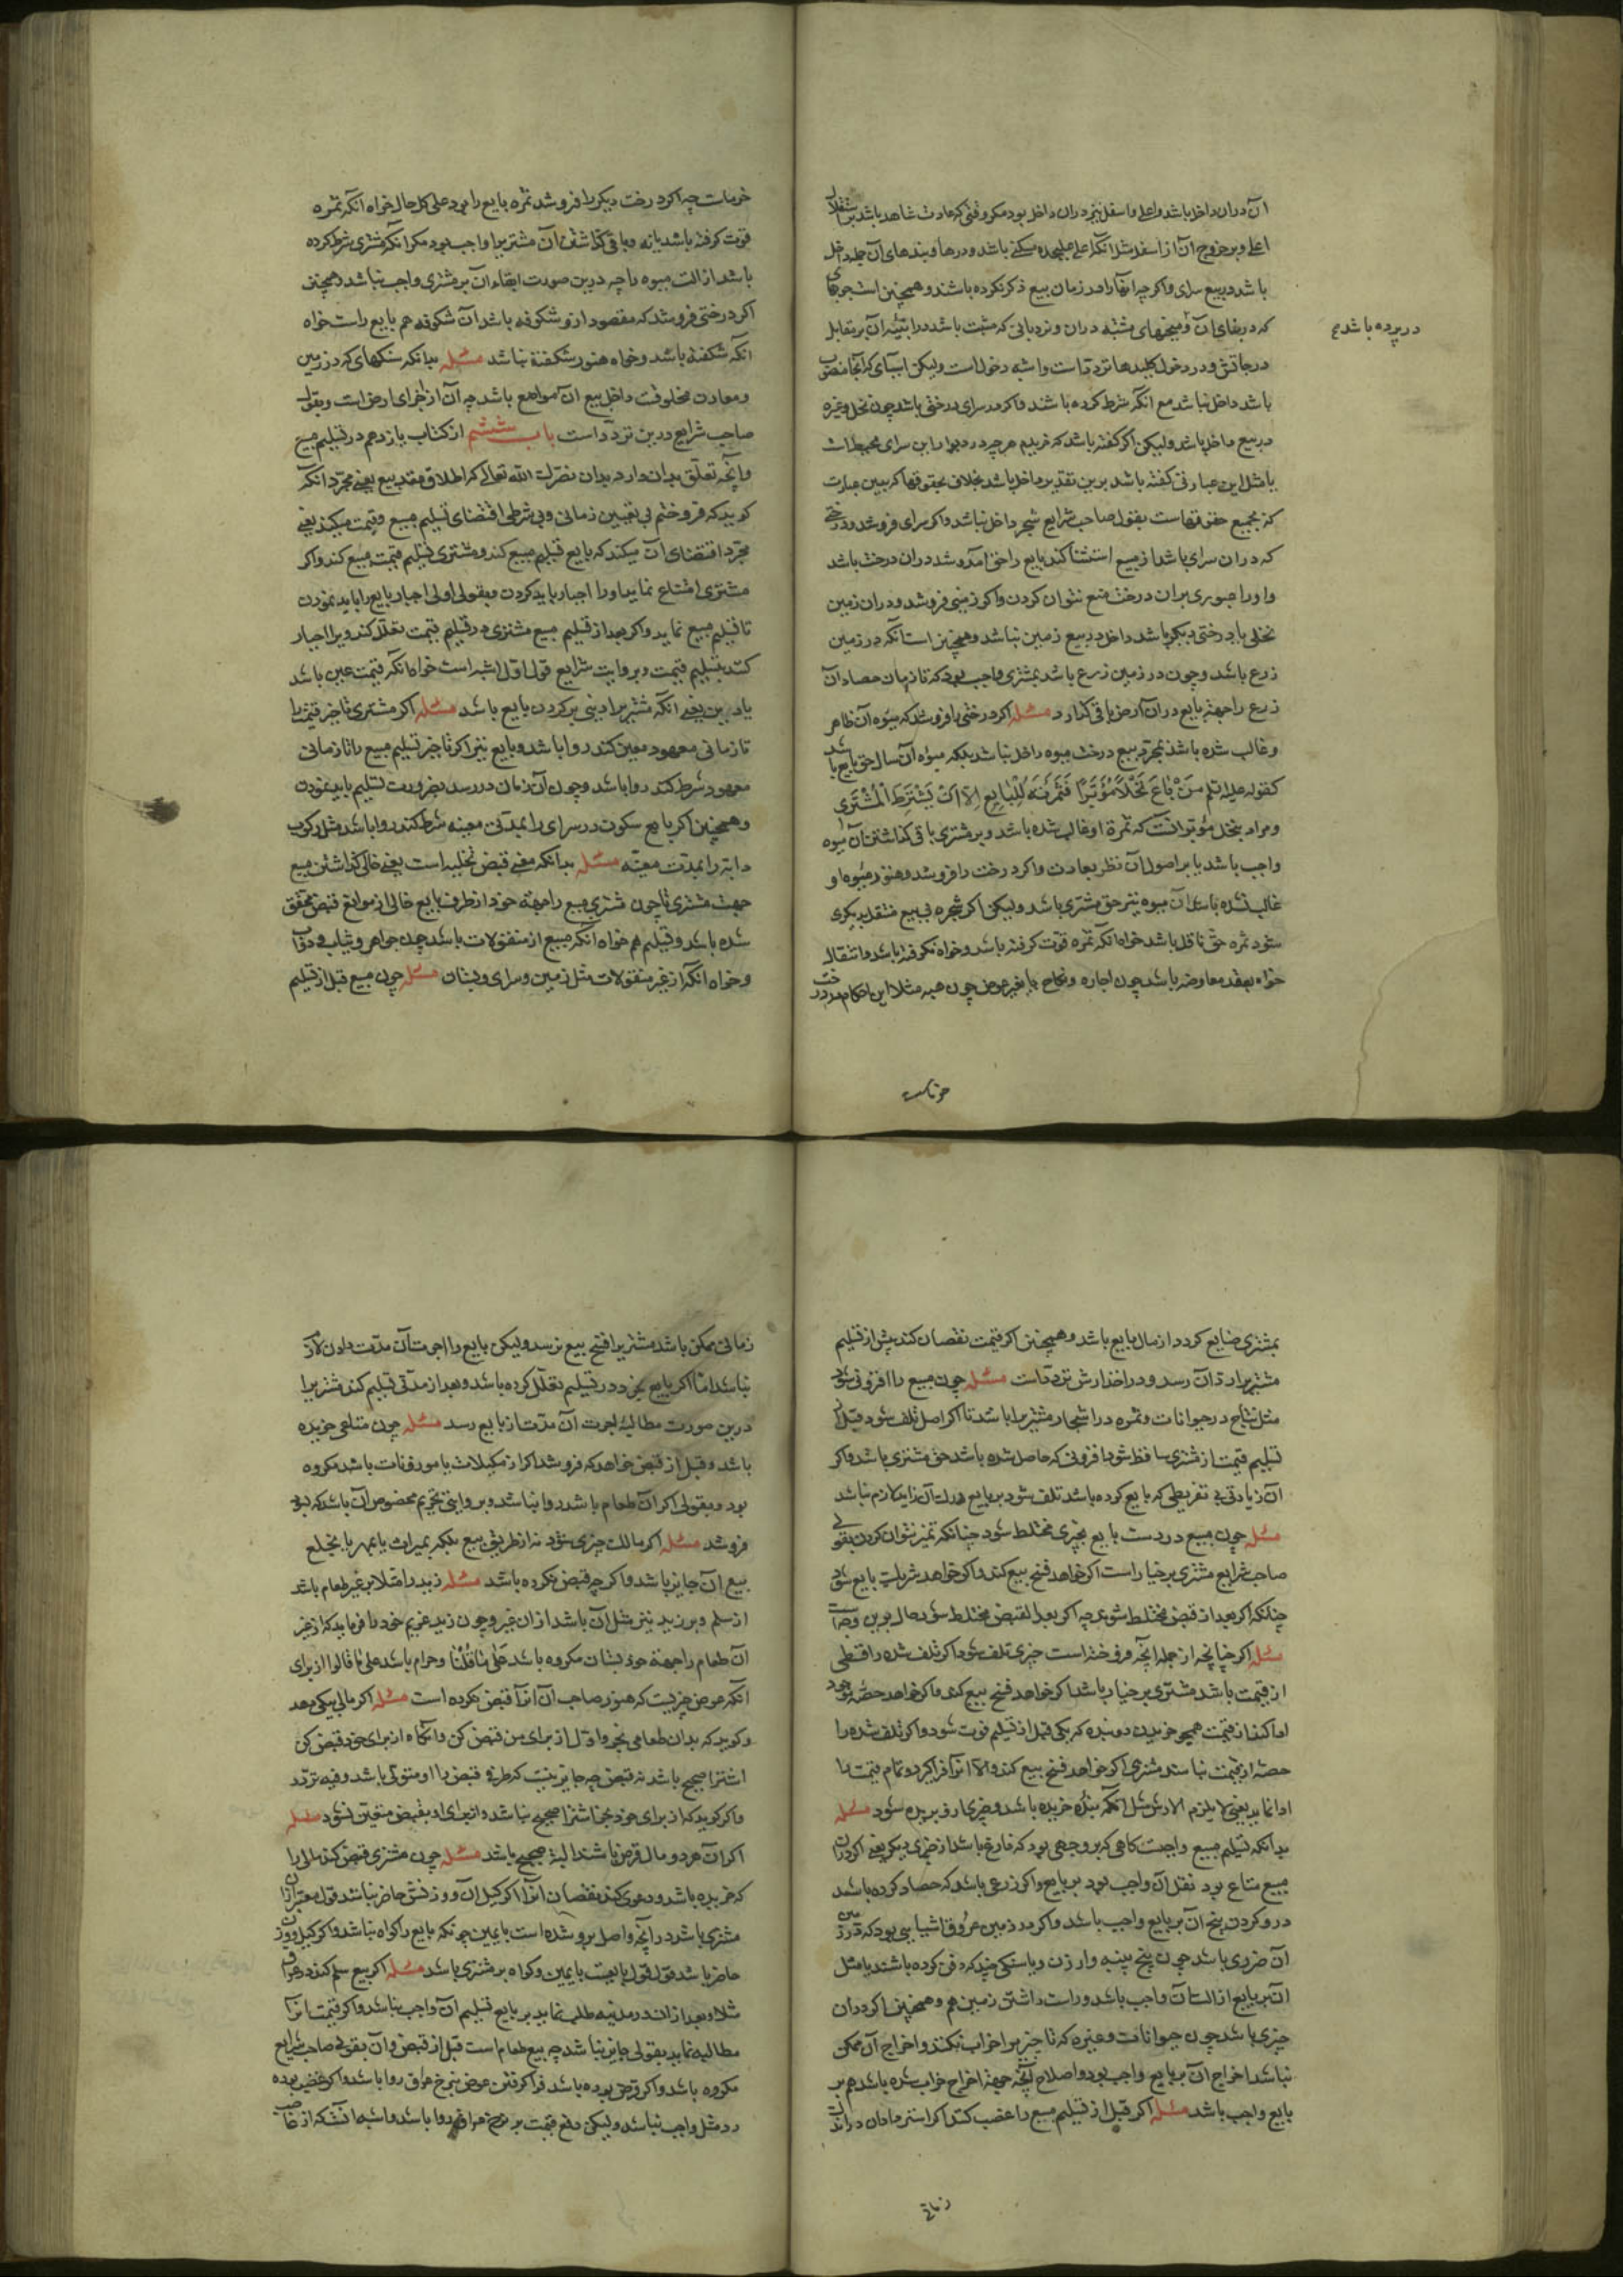 آن دران داخل باشد و اعلی و اسفل نیز دران داخل بود مکر وقتی که عادت شاهد باشد بر استقلال
اعلی و بر خروج آن از اسفل مثل آنکه اعلی علیحده مسکنی باشد و درها و بندهای آن جمله داخل
باشد در بیع سرای و اکرچه آنها را در زمان بیع ذکر نکرده باشند و همچنین است چوبهای
که در بنای آن و میخهای مثبته دران و نردبانی که مثبت باشد در ابنیه آن بر مقابل
در پرده باشد
درجات و در دخول کلیدها تردد است و اشبه دخول است ولیکن آسیای که آنجا منصوب
باشد داخل نباشد مع آنکه شرط کرده باشند و اکر در سرای درختی باشد چون نخل و غیره
در بیع داخل باشد ولیکن اکر کفته باشد که خریدم هرچه در دیوارها این سرای محیط است
یا مثل این عبارتی کفته باشد برین تقدیر داخل باشد بخلاف بحقوقها که بیین عبارت
که بجمیع حقوقهاست بقول صاحب شرایع شجر داخل نباشد و اکر سرای فروشد و درختی
که دران سرای باشد از مبیع استثنا کند بایع را حق آمد و شد دران درخت باشد
و او را عبوری بران درخت منع نتوان کردن و اکر زمینی فروشد و دران زمین
نخلی یا درختی دیکر باشد داخل در بیع زمین نباشد و همچنین است آنکه در زمین
زرع باشد و چون در زمین زرع باشد بمشتری واجب بود که تا زمان حصاد آن
زرع را جهة بایع در آن ارض باقی کذارد مسئله اکر درختی را فروشد که میوه آن ظاهر
و غالب شده باشد بمجرد بیع درخت میوه داخل نباشد بلکه میوه آن سال حق بایع باشد
کقوله علیه السلم مَنْ بَاعَ نَخْلًا مُؤَبَّرًا فَثَمَرَتُهُ لِلْبَايِعِ اِلَّا اَنْ يَشْتَرِطَ الْمُشْتَرِی
و مراد بنخل مؤبر آنست که ثمرة او غالب شده باشد و بر مشتری باقی کذاشتن آن میوه
واجب باشد یا بر اصول آن نظر بعادت و اکر درخت را فروشد و هنوز میوه او
غالب نشده باشد آن میوه نیز حق مشتری باشد ولیکن اکر شجره بی بیع منتقل بدیکری
شود ثمره حق ناقل باشد خواه آنکه ثمره قوت کرفته باشد و خواه نکرفته باشد و انتقال
خواه بعقد معاوضه باشد چون اجاره و نکاح یا بغیر عوض چون هبه مثلا این احکام در درخت
خرماست
خرماست چه اکر درخت دیکر را فروشد ثمره بایع را بود علی کل حال خواه آنکه ثمره
قوت کرفته باشد یا نه و باقی کذاشتن آن مشتریرا واجب بود مکر آنکه مشتری شرط کرده
باشد ازالت میوه را چه درین صورت ابقاء آن بر مشتری واجب نباشد و همچنین
اکر درختی فروشد که مقصود ازو شکوفه باشد آن شکوفه هم بایع راست خواه
آنکه شکفته باشد و خواه هنوز شکفته نباشد مسئله بدانکه سنکهای که در زمین
و معادن مخلوقست داخل بیع آن مواضع باشد چه آن از اجزای ارض است و بقول
صاحب شرایع درین تردد است باب ششم از کتاب یازدهم در تسلیم مبیع
و آنچه تعلق بدان دارد بدان نصرک الله تعالی که اطلاق عقد بیع یعنی مجرد آنکه
کوید که فروختم بی تعیین زمانی و بی شرطی اقتضای تسلیم مبیع و قیمت میکند یعنی
مجرد اقتضای آن میکند که بایع تسلیم مبیع کند و مشتری تسلیم قیمت مبیع کند و اکر
مشتری امتناع نماید او را اجبار باید کردن و بقولی اولی اجبار بایع را باید نمودن
تا تسلیم مبیع نماید و اکر بعد از تسلیم مبیع مشتری در تسلیم قیمت تعلل کند ویرا اجبار
کنند بتسلیم قیمت و بروایت شرایع قول اول اشبه است خواه آنکه قیمت عین باشد
یا دین یعنی آنکه مشتریرا دینی بر کردن بایع باشد مسئله اکر مشتری تاخیر قیمت را
تا زمانی معهود معین کند روا باشد و بایع نیز اکر تاخیر تسلیم مبیع را تا زمانی
معهود شرط کند روا باشد و چون آن زمان در رسد بضرورت تسلیم باید نمودن
و همچنین اکر بایع سکون در سرای را بمدتی معینه شرط کند روا باشد مثل رکوب
دابه را بمدت معینه مسئله بدانکه معنی قبض تخلیه است یعنی خالی کذاشتن مبیع
جهت مشتری تا چون مشتری مبیع را جهة خود از طرف بایع خالی از موانع قبض محقق
شده باشد و تسلیم هم خواه آنکه مبیع از منقولات باشد چون جواهر و ثیاب و دواب
و خواه آنکه از غیر منقولات مثل زمین و سرای و بستان مسئله چون مبیع قبل از تسلیم
بمشتری ضایع کردد از مال بایع باشد و همچنین اکر قیمت نقصان کند پیش از تسلیم
مشتریرا رد آن رسد و در اخذ ارش تردد است مسئله چون مبیع را افزونی شود
مثل نتاج در حیوانات و ثمره در اشجار مشتریرا باشد تا اکر اصل تلف شود قبل از
تسلیم قیمت از مشتری ساقط شود افزونی که حاصل شده باشد حق مشتری باشد و اکر
آن زیادتی بی تفریطی که بایع کرده باشد تلف شود بر بایع درک آن زاید لازم نباشد
مسئله چون مبیع در دست بایع بچیزی مختلط شود چنانکه تمیز نتوان کردن بقول
صاحب شرایع مشتری بر خیار است اکر خواهد فسخ بیع کند و اکر خواهد شریک بایع شود
چنانکه اکر بعد از قبض مختلط شود چه اکر بعد القبض مختلط شود حال برین وجه است
مسئله اکر چنانچه از جمله آنچه فروخته است چیزی تلف شود اکر تلف شده را قسطی
از قیمت باشد مشتری بر خیار باشد اکر خواهد فسخ بیع کند و اکر خواهد حصه موجود
ادا کند از قیمت همچو خریدن دو بنده که یکی قبل از تسلیم فوت شود و اکر تلف شده را
حصه از قیمت نباشد مشتری اکر خواهد فسخ بیع کند والا آنرا فراکیرد و تمام قیمت را
ادا نماید یعنی لا یلزم الارش مثل آنکه بنده خریده باشد و چیزی ازو بریده شود مسئله
بدانکه تسلیم مبیع واجبست کاهی که بر وجهی بود که فارغ باشد از چیزی دیکر یعنی اکر دران
مبیع متاع بود نقل آن واجب بود بر بایع و اکر زرعی باشد که حصاد کرده باشد
درو کردن بیخ آن بر بایع واجب باشد و اکر در زمین عروق اشیایی بود که در زمین
آن ضرری باشد چون بیخ پنبه و ارزن و یا سنکی چند که دفن کرده باشند یا مثل
آن بر بایع ازالت آن واجب باشد و راست داشتن زمین هم و همچنین اکر دران
چیزی باشد چون حیوانات و غیره که تا چیزیرا خراب نکنند و اخراج آن ممکن
نباشد اخراج آن بر بایع واجب بود و اصلاح آنچه جهة اخراج خراب شده باشد هم بر
بایع واجب باشد مسئله اکر قبل از تسلیم مبیع را غصب کنند اکر استرداد آن در اندک
زمانی
زمانی ممکن باشد مشتریرا فسخ بیع نرسد ولیکن بایع را اجرت آن مدت دادن لازم
نباشد اما اکر بایع خود در تسلیم تعلل کرده باشد و بعد از مدتی تسلیم کند مشتریرا
درین صورت مطالبهٔ اجرت آن مدت از بایع رسد مسئله چون متاعی خریده
باشد و قبل از قبض خواهد که فروشد اکر از مکیلات یا موزونات باشد مکروه
بود و بقولی اکر آن طعام باشد روا نباشد و بروایتی تحریم مخصوص آن باشد که بسود
فروشد مسئله اکر مالک چیزی شود نه از طریق بیع بلکه بمیراث یا بمهر یا بخلع
بیع آن جایز باشد و اکرچه قبض نکرده باشد مسئله زید را مثلا بر غیر طعام باشد
از سلم و بر زید نیز مثل آن باشد از آن غیر و چون زید غریم خود را فرماید که از غیر
آن طعام را جهة خود بستان مکروه باشد علی ما قلنا و حرام باشد علی ما قالوا از برای
آنکه عوض چیزیست که هنوز صاحب آن آنرا قبض نکرده است مسئله اکر مالی بیکی دهد
و کوید که بدان طعامی بخر و اول از برای من قبض کن و آنکاه از برای خود قبض کن
اشترا صحیح باشد نه قبض چه جایز نیست که طرفی قبض را او متولی باشد و فیه تردد
و اکر کوید که از برای خود بخر اشترا صحیح نباشد و از برای او بقبض متعین نشود مسئله
اکر آن هر دو مال قرض باشند البته صحیح باشد مسئله چون مشتری قبض کند مالی را
که خریده باشد و دعوی کند نقصان آنرا اکر کیل آن و وزنش حاضر نباشد قول معتبر ازآن
مشتری باشد در آنچه واصل برو شده است با یمین چونکه بایع را کواه نباشد و اکر کیل و وزن
حاضر باشد قول قول بایعست با یمین و کواه بر مشتری باشد مسئله اکر بیع سلم کند در عراق
مثلا و بعد ازان در مدینه طلب نماید بر بایع تسلیم آن واجب نباشد و اکر قیمت آنرا
مطالبه نماید بقولی جایز نباشد چه بیع طعام است قبل از قبض و آن بقول صاحب شرایع
مکروه باشد و اکر قرض بوده باشد فراکرفتن عوض بنرخ عراق روا باشد و اکر غصب بوده
رد مثل واجب نباشد ولیکن دفع قیمت بر نرخ عراق روا باشد و اشبه آنست که از غاصب